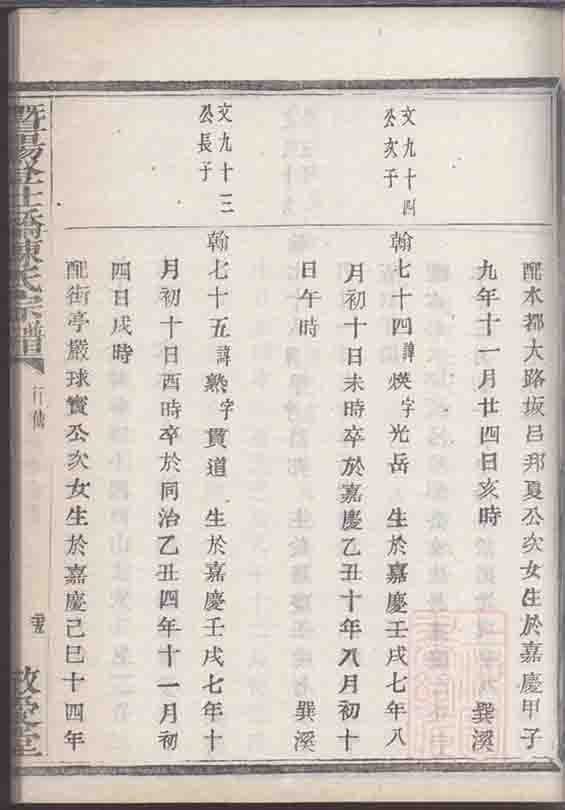 配本都大路坂呂邦夏公次女生於嘉慶甲子
九年十一月廿四日亥時
巽溪
文九十四
公次子
翰七十四諱煐字光岳 生於嘉慶壬戌七年八
月初十日未時卒於嘉慶乙丑十年八月初十
日午時
巽溪
文九十三
公長子
翰七十五諱熟字貫道 生於嘉慶壬戌七年十
月初十日酉時卒於同治乙丑四年十一月初
四日戌時
配街亭嚴球寶公次女生於嘉慶己巳十四年
暨陽 橋陳氏宗譜
行傳
敬愛堂